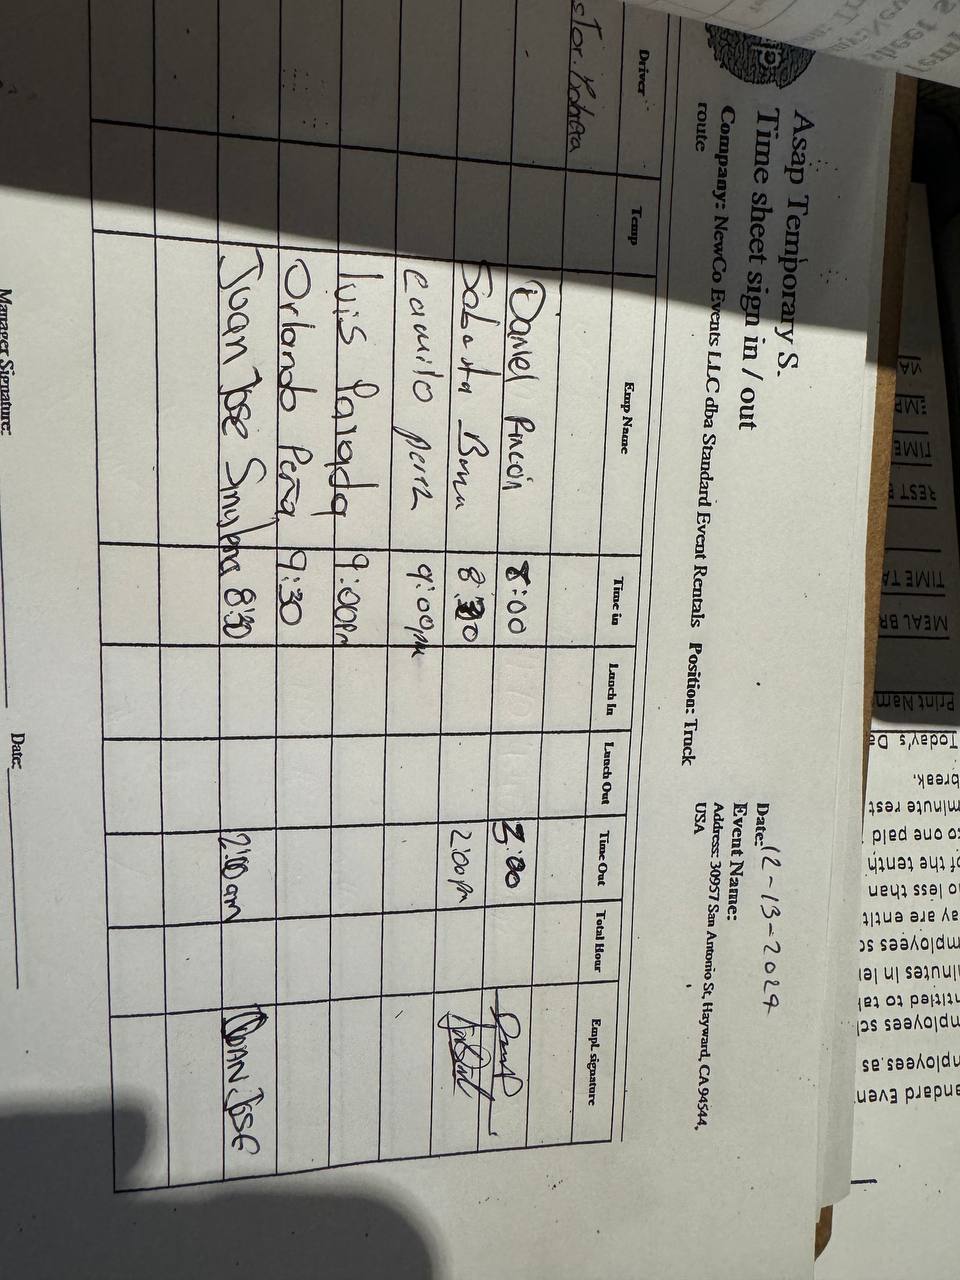 Asap Temporary S.
Time sheet sign in / out
Company: NewCo Events LLC dba Standard Event Rentals Position: Truck
route
Date: 12-13-2024
Event Name:
Address: 30957 San Antonio St, Hayward, CA 94544,
USA
Driver Temp Emp Name Time in Lunch In Lunch Out Time Out Total Hour Empl. signature
Daniel Rincón 8:00 3:00
8:30 2:00pm
Camilo perez 9:00pm
Luis Parada 9:00pm
Orlando Peña 9:30
Juan José 8:30 2:00am JUAN JOSE
Manager Signature: Date:
VA
EMP
TIME
REST B
TIME TA
MEAL BR
Print Nam
Today's Da
break.
minute rest
to one paid
of the tenth
no less than
ay are entit
mployees sc
inutes in le
ntitled to tak
mployees sc
mployees as
andard Even